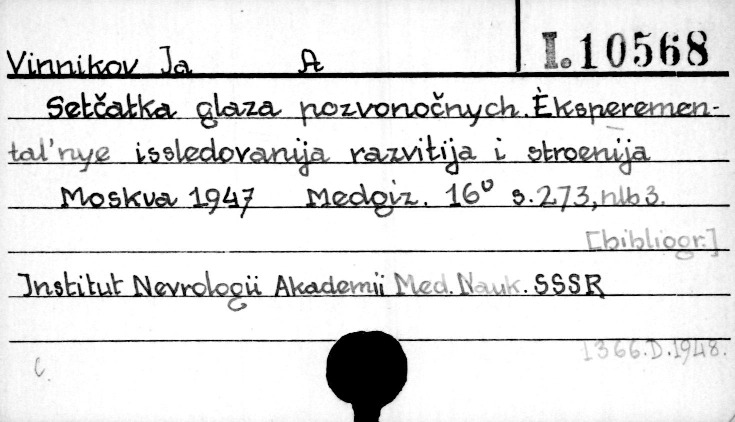 I.10568
Vinnikov Ja A
Setčatka glaza pozvonočnych. Èksperemen-
tal'nye issledovanija razvitija i stroenija
Moskva 1947 Medgiz. 16° s.273,
[bibliogr.]
Institut Nevrologii Akademii Med. Nauk. SSSR
1366.D.1948.